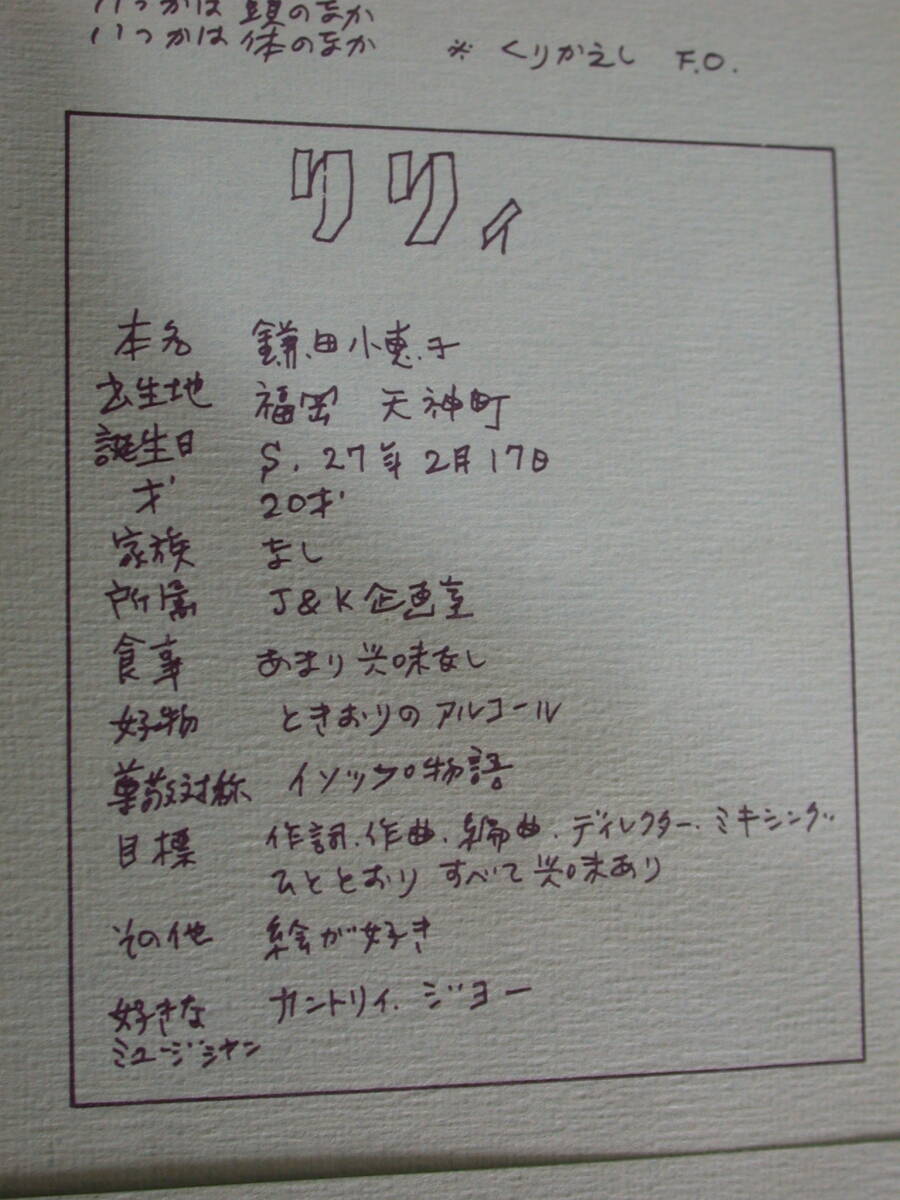 いつかは 頭のなか
いつかは 体のなか ※ くりかえし F.O.
リリィ
本名 鎌田小恵子
出生地 福岡 天神町
誕生日 S.27年2月17日
才 20才
家族 なし
所属 J&K企画室
食事 あまり興味なし
好物 ときおりのアルコール
尊敬対称 イソップ物語
目標 作詞.作曲.編曲.ディレクター.ミキシング..
ひととおり すべて興味あり
その他 絵が好き
好きな カントリィ.ジョー
ミュージシャン